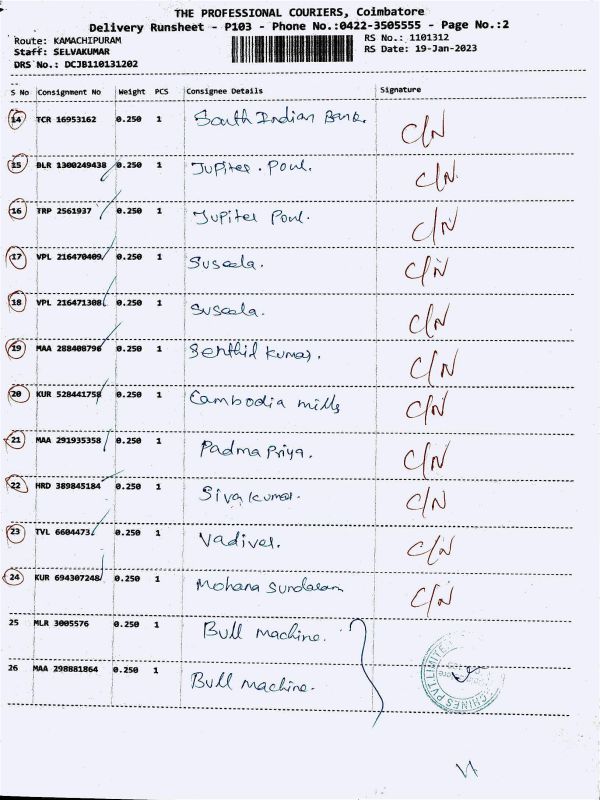 THE PROFESSIONAL COURIERS, Coimbatore
Delivery Runsheet - P103 - Phone No.:0422-3505555 - Page No.:2
Route: KAMACHIPURAM
RS No.: 1101312
Staff: SELVAKUMAR
RS Date: 19-Jan-2023
DRS No.: DCJB110131202
S No Consignment No Weight PCS Consignee Details Signature
14 TCR 16953162 0.250 1 South Indian Bank. C/N
15 BLR 1300249438 0.250 1 Jupiter. Poul. C/N
16 TRP 2561937 0.250 1 Jupiter Poul. C/N
17 VPL 216470409 0.250 1 Suseela. C/N
18 VPL 216471308 0.250 1 Suseela. C/N
19 MAA 288408796 0.250 1 Senthil Kumar. C/N
20 KUR 528441758 0.250 1 Cambodia mills C/N
21 MAA 291935358 0.250 1 Padma Priya. C/N
22 HRD 389845184 0.250 1 Siva kumar. C/N
23 TVL 6604473 0.250 1 Vadivel. C/N
24 KUR 694307248 0.250 1 Mohana Sundaram C/N
25 MLR 3005576 0.250 1 Bull machine.
26 MAA 298881864 0.250 1 Bull machine.